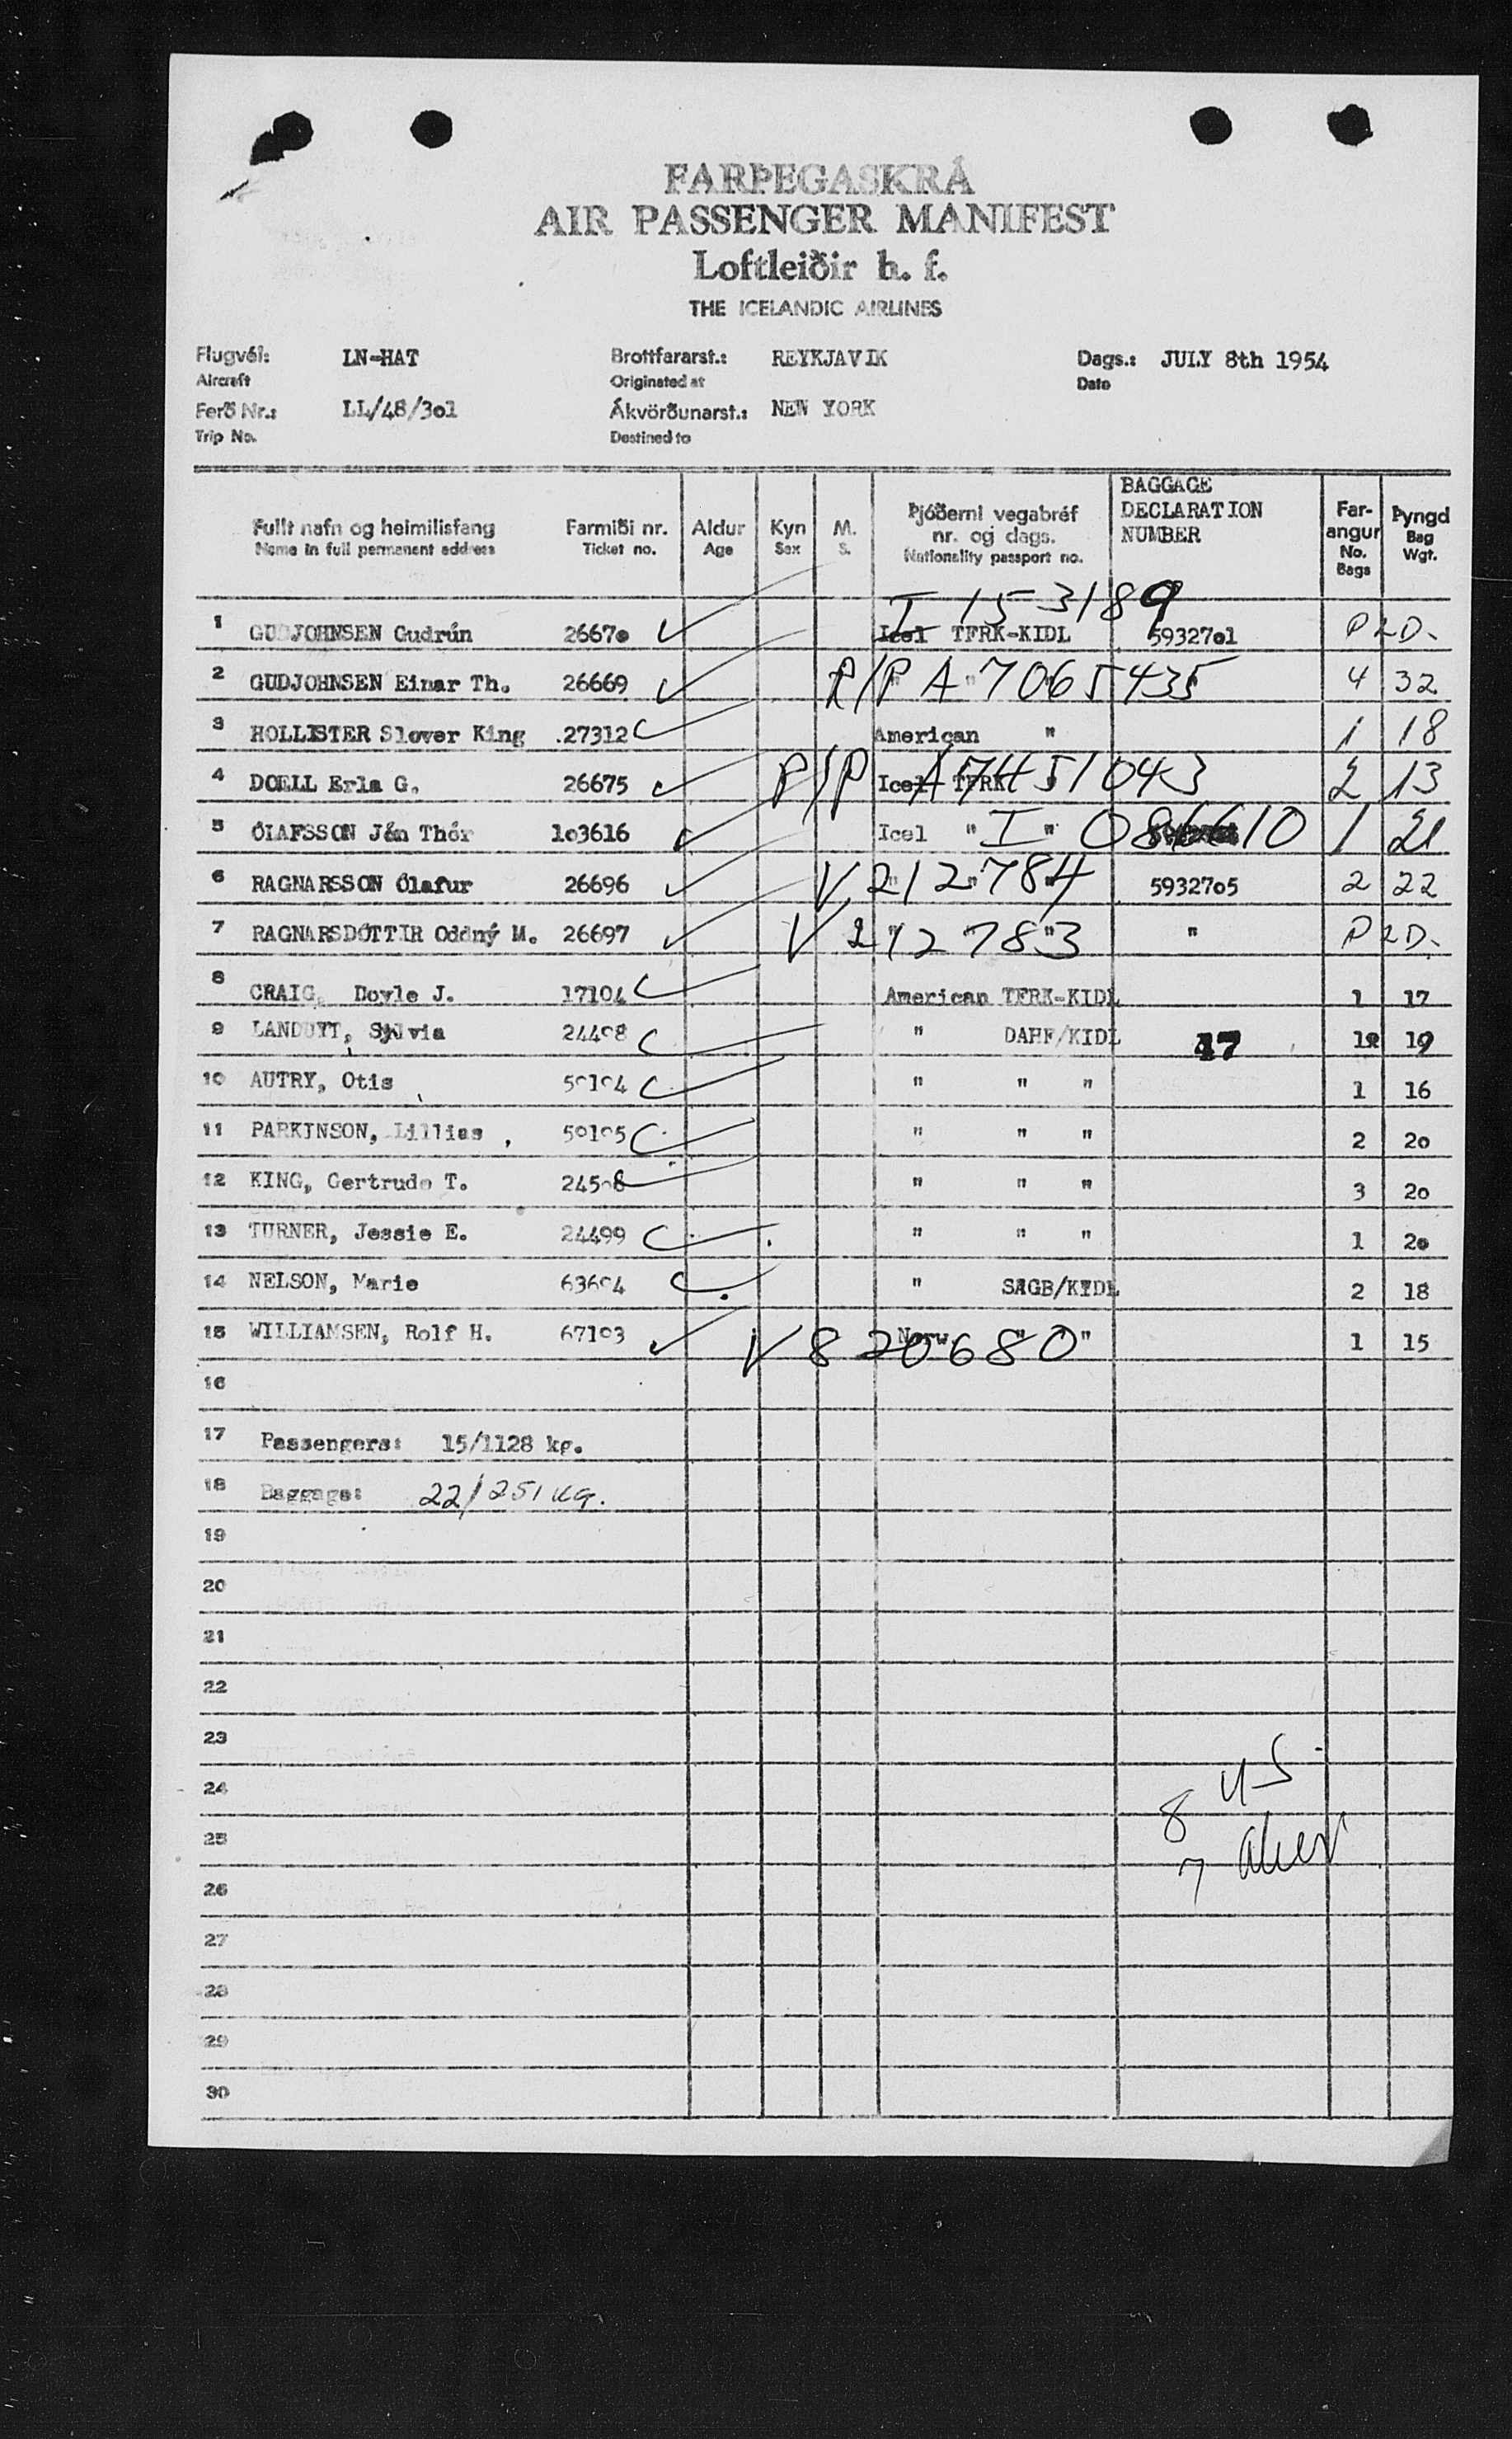 FARÞEGASKRÁ
AIR PASSENGER MANIFEST
Loftleiðir h. f.
THE ICELANDIC AIRLINES
Flugvél: LN-HAT Brottfararst.: REYKJAVIK Dags.: JULY 8th 1954
Aircraft Originated at Date
Ferð Nr.: LL/48/3o1 Ákvörðunarst.: NEW YORK
Trip No. Destined to
Fullt nafn og heimilisfang Farmiði nr. Aldur Kyn M. Þjóðerni vegabréf nr. og dags. BAGGAGE DECLARATION NUMBER Farangur Þyngd
Name in full permanent address Ticket no. Age Sex S. Nationality passport no. No. Bags Bag Wgt.
I 153189
1 GUDJOHNSEN Gudrún 2667o Icel TFRK-KIDL 59327o1 P2D.
2 GUDJOHNSEN Einar Th. 26669 P/P A 7065435 4 32
3 HOLLISTER Slover King 27312 American " 1 18
4 DOELL Erla G. 26675 P/P Icel TFRK A7451043 2 13
5 ÓLAFSSON Ján Thór 1o3616 Icel " " I 086610 1 21
6 RAGNARSSON Ólafur 26696 " " " V 212784 59327o5 2 22
7 RAGNARSDÓTTIR Oddný M. 26697 " " V 212783 " P2D.
8 CRAIG, Doyle J. 17104 American TFRK-KIDL 1 17
9 Sylvia 244o8 " DAHF/KIDL 47 19
10 AUTRY, Otis 5o1o4 " " " 1 16
11 PARKINSON, Lillias 5o1o5 " " " 2 2o
12 KING, Gertrude T. 245o8 " " " 3 2o
13 TURNER, Jessie E. 24499 " " " 1 2o
14 NELSON, Marie 636o4 " SAGB/KIDL 2 18
15 WILLIAMSEN, Rolf H. 671o3 Norw. " " V 820680 1 15
16
17 Passengers: 15/1128 kg.
18 Baggage: 22/251 kg.
19
20
21
22
23
24
8 US
25
7 alien
26
27
28
29
30